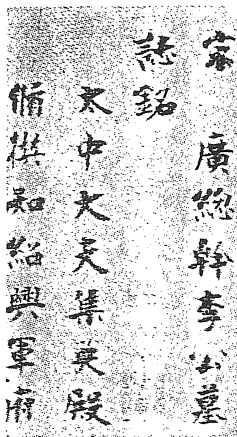 宋 廣總幹李公墓
誌銘
太中大夫集英殿
脩撰知紹興軍府